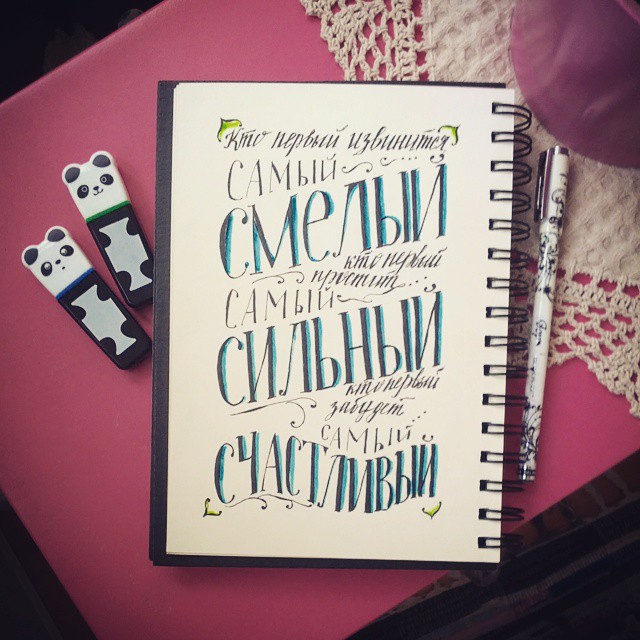 Кто первый извинится
САМЫЙ ...
СМЕЛЫЙ
кто первый
простит...
САМЫЙ
СИЛЬНЫЙ
кто первый
забудет...
САМЫЙ
СЧАСТЛИВЫЙ